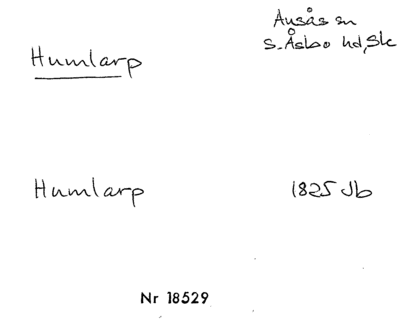 Ausås sn
Humlarp S. Åsbo hd, Sk
Humlarp 1825 Jb
Nr 18529